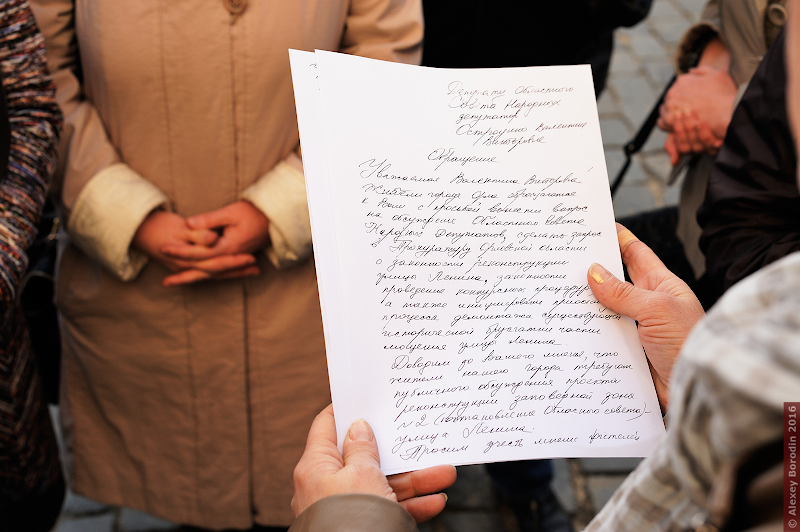 Депутату Областного
Совета Народных
депутатов
Остроушко Валентине
Викторовне
Обращение
Уважаемая Валентина Викторовна!
Жители города Орла обращаются
к Вам с просьбой вынести вопрос
на обсуждение Областного Совета
Народных Депутатов, сделать запрос
в Прокуратуру Орловской области
о законности реконструкции
улицы Ленина, законности
проведения конкурсных процедур,
а также инициирования
процесса демонтажа существующей
исторической брусчатки части
мощения улицы Ленина.
Доводим до Вашего , что
жители нашего города требуют
публичного обсуждения проекта
реконструкции заповедной зоны
№2 (постановление Областного совета) -
улица Ленина.
Просим учесть мнение жителей
© Alexey Borodin 2016